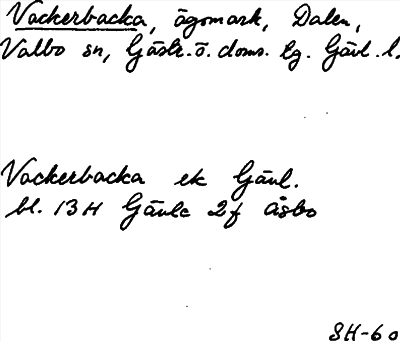 Vackerbacka, ägomark, Dalen,
Valbo sn, Gästr. ö. doms. lg. Gävl. l.
Vackerbacka ek Gävl.
bl. 13 H Gävle 2f åsbo
SH-60